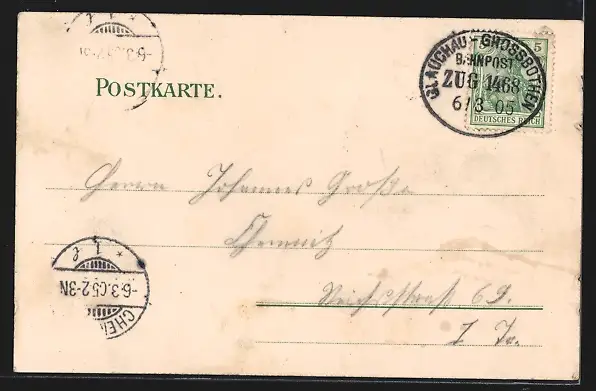 -6.3.05.2-
POSTKARTE.
GLAUCHAU - GROSSBOTHEN
BAHNPOST
ZUG 1468
6/3 05
5
DEUTSCHES REICH
Herrn Johannes Große
Chemnitz
Reichsstraße 69.
I Tr.
CHE
-6.3.05.2-3N